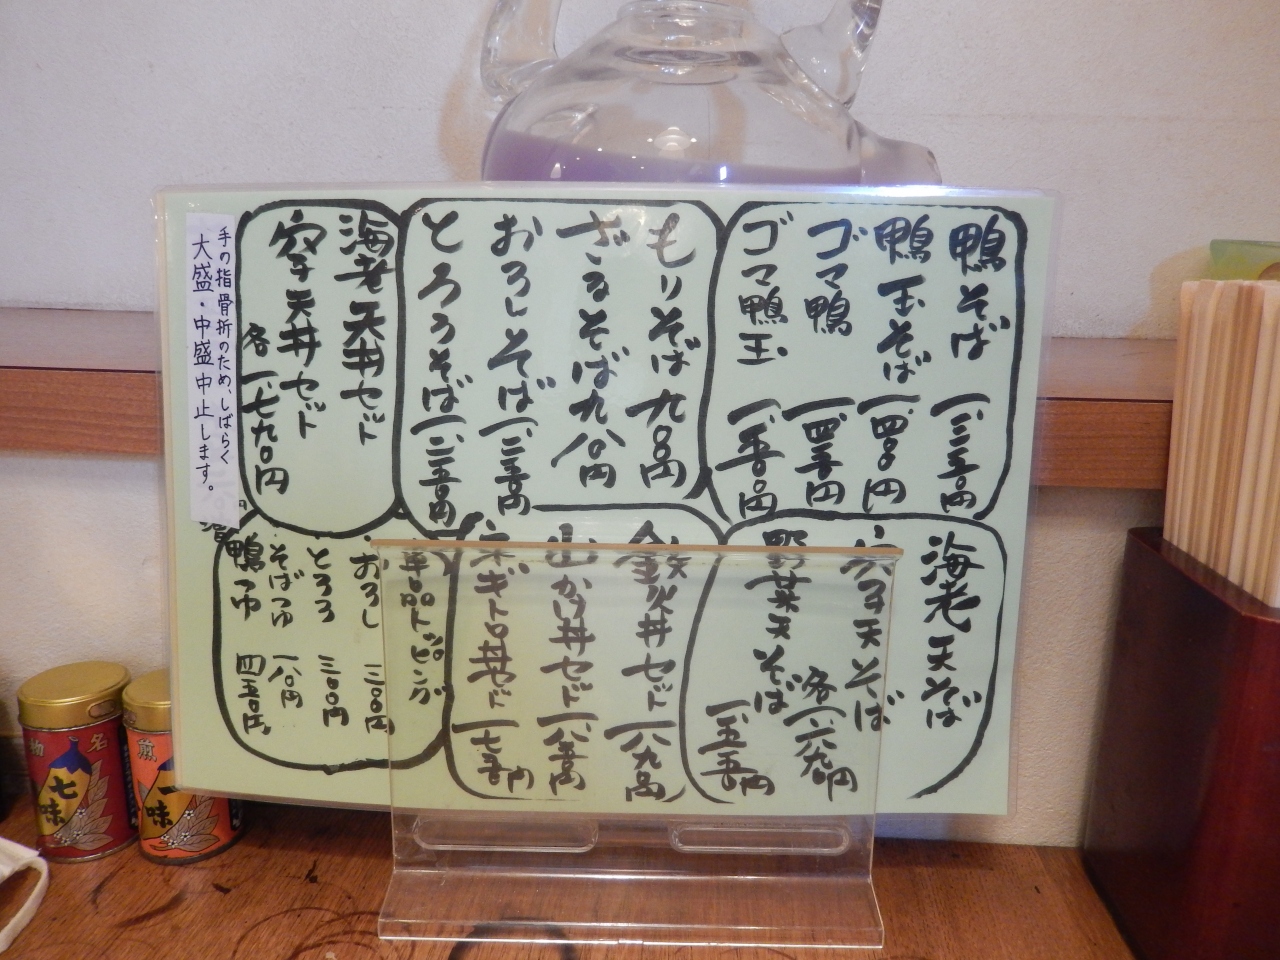 鴨そば 一、三五〇円
鴨玉そば 一、四〇〇円
ゴマ鴨 一、四五〇円
ゴマ鴨玉 一、五〇〇円
もりそば 九〇〇円
ざるそば 九八〇円
おろしそば 一、二五〇円
とろろそば 一、二五〇円
海老天丼セット
穴子天丼セット
各 一、七九〇円
手の指骨折のため、しばらく
大盛・中盛中止します。
海老天そば
穴子天そば
各 一、六九〇円
野菜天そば
一、五五〇円
鉄火丼セット
山かけ丼セット
ネギトロ丼セット
単品トッピング
おろし 三〇〇円
とろろ 三〇〇円
そばつゆ 一八〇円
鴨つゆ 四五〇円
名物
七味